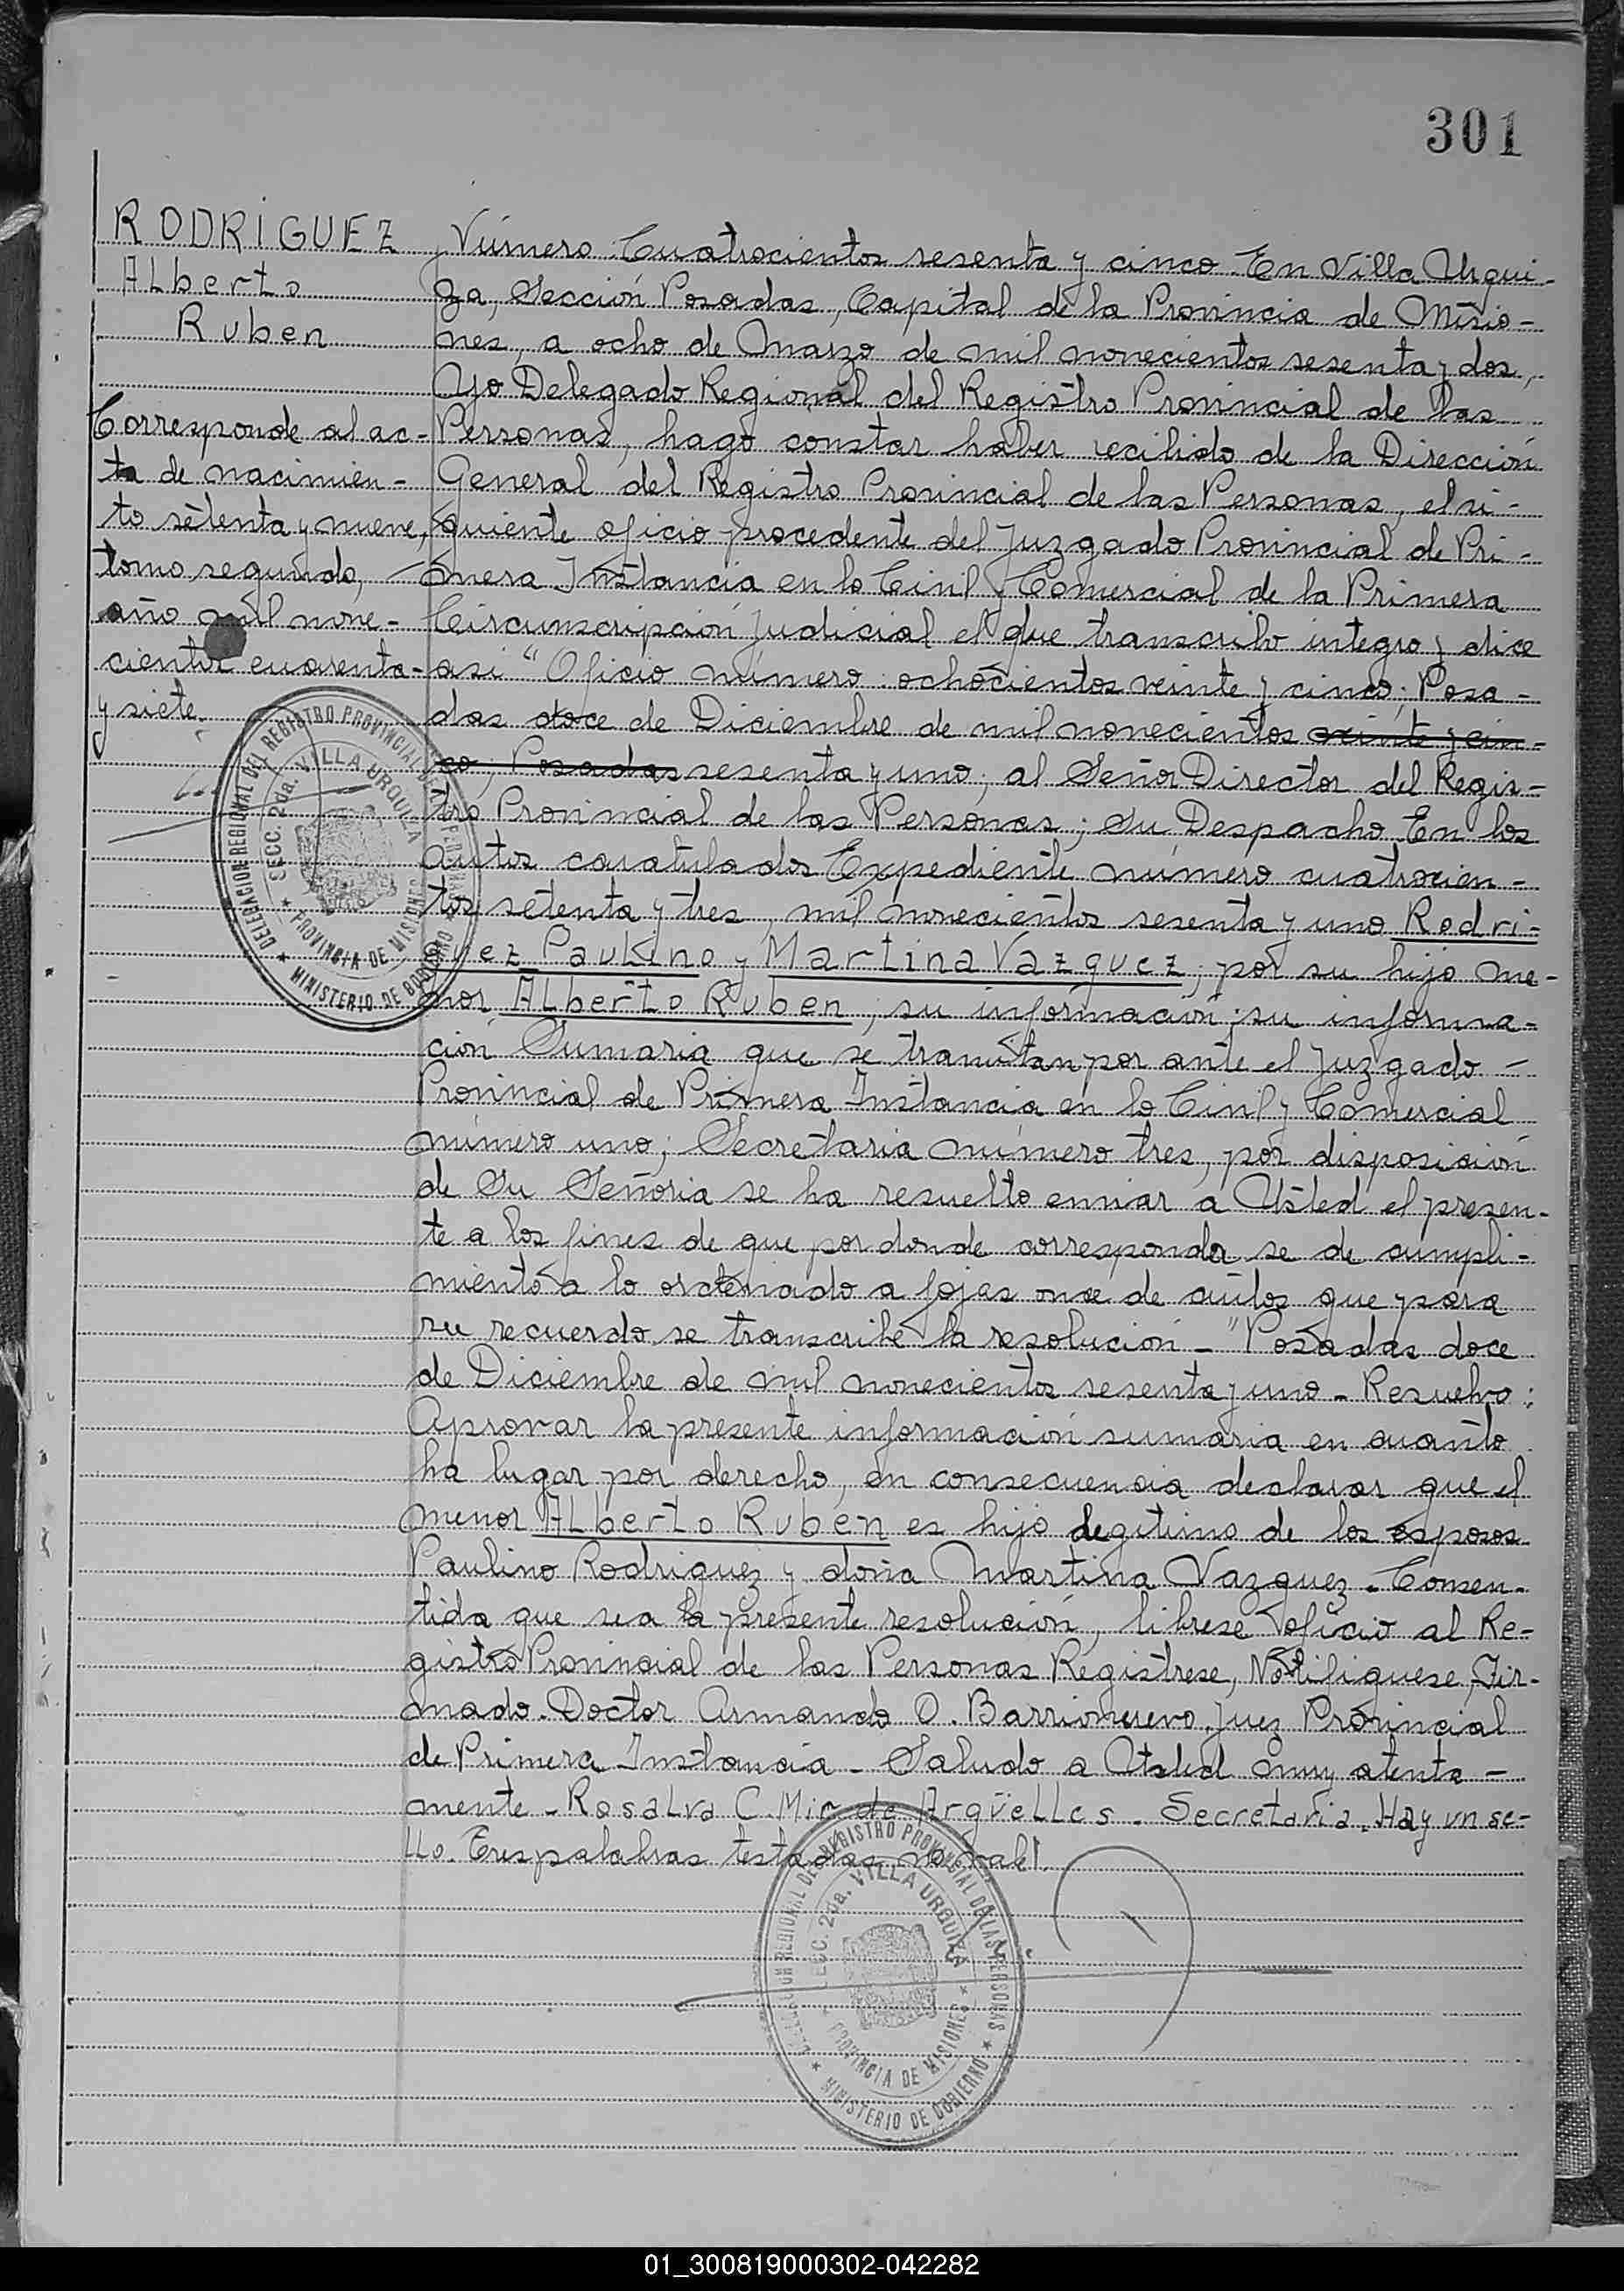 301
RODRIGUEZ
Alberto
Ruben
Corresponde al ac-
ta de nacimien-
to setenta y nueve,
tomo segundo,
año mil nove-
cientos cuarenta
y siete.
Número: Cuatrocientos sesenta y cinco En Villa Urqui-
za, Sección Posadas, Capital de la Provincia de Misio-
nes, a ocho de Marzo de mil novecientos sesenta y dos,
Yo Delegado Regional del Registro Provincial de las
Personas, hago constar haber recibido de la Dirección
General del Registro Provincial de las Personas, el si-
guiente oficio procedente del Juzgado Provincial de Pri-
mera Instancia en lo Civil y Comercial de la Primera
Circunscripción Judicial el que transcribo integro y dice
asi "Oficio número: ochocientos veinte y cinco; Posa-
das doce de Diciembre de mil novecientos veinte y cin-
co; Posadas sesenta y uno; al Señor Director del Regis-
tro Provincial de las Personas; Su Despacho En los
autos caratulados Expediente número cuatrocien-
tos setenta y tres, mil novecientos sesenta y uno Rodri-
guez Paulino y Martina Vazquez, por su hijo me-
nor Alberto Ruben; su información; su informa-
ción Sumaria que se tramitan por ante el Juzgado -
Provincial de Primera Instancia en lo Civil y Comercial
número uno; Secretaria número tres, por disposición
de Su Señoria se ha resuelto enviar a Usted el presen-
te a los fines de que por donde corresponda se de cumpli-
miento a lo ordenado a fojas once de autos que para
su recuerdo se transcribe la resolución - "Posadas doce
de Diciembre de mil novecientos sesenta y uno - Resuelvo:
Aprovar la presente información sumaria en cuanto
ha lugar por derecho, en consecuencia declarar que el
menor Alberto Ruben es hijo legitimo de los esposos
Paulino Rodriguez y doña Martina Vazquez. Consen-
tida que sea la presente resolución, librese oficio al Re-
gistro Provincial de las Personas Registrese, Notifiquese, Fir-
mado. Doctor Armando O. Barrionuevo. Juez Provincial
de Primera Instancia - Saludo a Usted muy atenta -
mente - Rosalva C. Mir de Argüelles. Secretaria. Hay un se-
llo. Tres palabras testadas no vale.
DELEGACION REGIONAL DEL REGISTRO PROVINCIAL DE LAS PERSONAS
SECC. 2da. VILLA URQUIZA
PROVINCIA DE MISIONES
MINISTERIO DE GOBIERNO
DELEGACION REGIONAL DEL REGISTRO PROVINCIAL DE LAS PERSONAS
SECC. 2da. VILLA URQUIZA
PROVINCIA DE MISIONES
MINISTERIO DE GOBIERNO
01_300819000302-042282